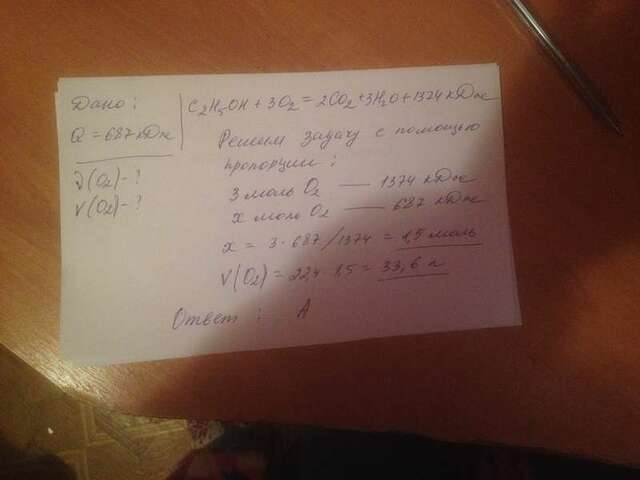 Дано:
Q = 687 кДж
ν(O₂) - ?
V(O₂) - ?
C₂H₅OH + 3O₂ = 2CO₂ + 3H₂O + 1374 кДж
Решим задачу с помощью
пропорции:
3 моль O₂ — 1374 кДж
x моль O₂ — 687 кДж
x = 3 · 687 / 1374 = 1,5 моль
V(O₂) = 22,4 · 1,5 = 33,6 л
Ответ: А